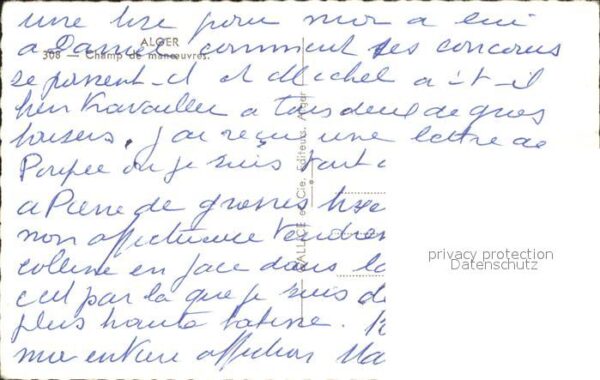 une bise pour moi a lui
a Daniel comment ses concours
se passent-il et Michel a-t-il
bien travailler a tous deux de gros
baisers, j'ai reçu une lettre de
Poupée ou je suis tant
a Pierre de grosses bises
mon affectueuse tendres
colline en face dans la
c'est par la que je suis de
plus haute
mon entière affection Ma
ALGER
308 — Champ de manœuvres.
et Cie, Editeurs, Alger
privacy protection
Datenschutz